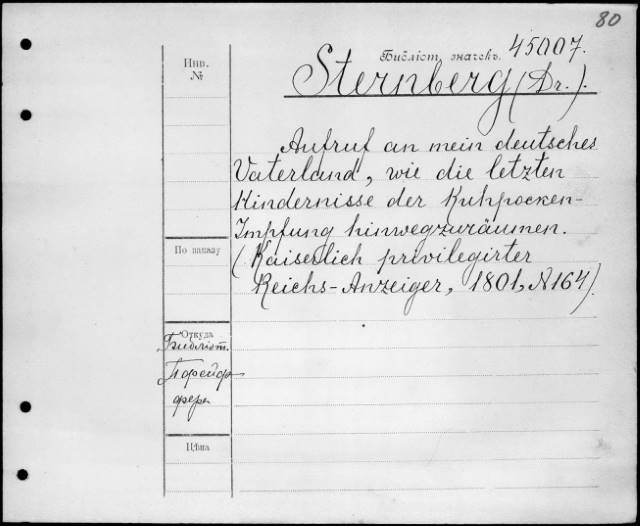 80
Библіот. значекъ. 45007.
Sternberg (Dr.).
Инв. №
Aufruf an mein deutsches
Vaterland, wie die letzten
Hindernisse der Kuhpocken-
Impfung hinwegzuräumen.
(Kaiserlich privilegirter
Reichs-Anzeiger, 1801, N 164).
По заказу
Откуда
Библіот.
Цѣна